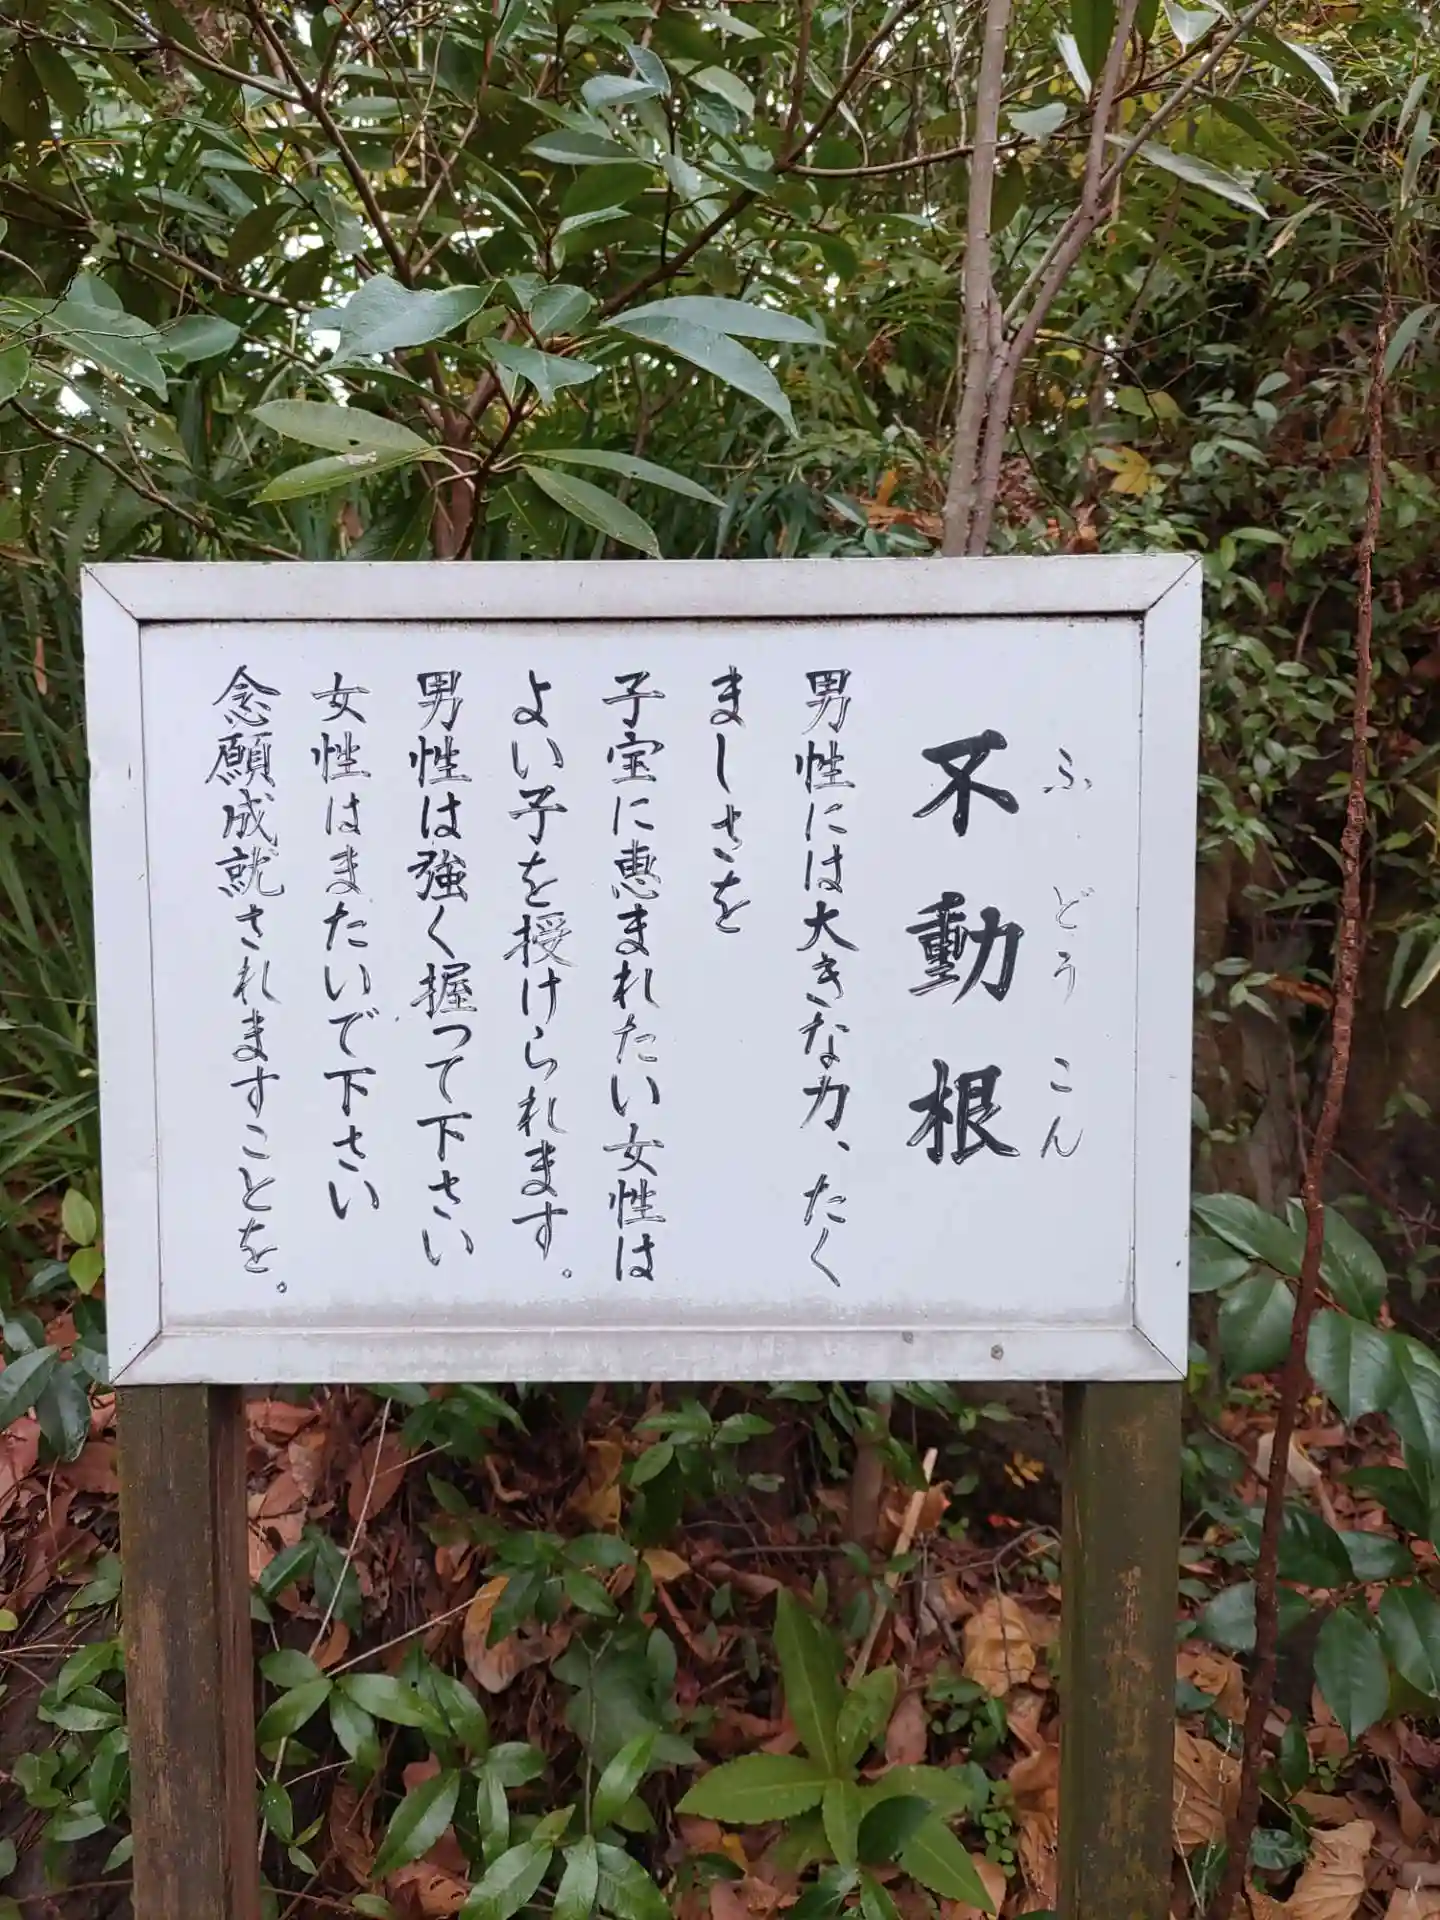 ふどうこん
不動根
男性には大きな力、たく
ましさを
子宝に恵まれたい女性は
よい子を授けられます。
男性は強く握って下さい
女性はまたいで下さい
念願成就されますことを。